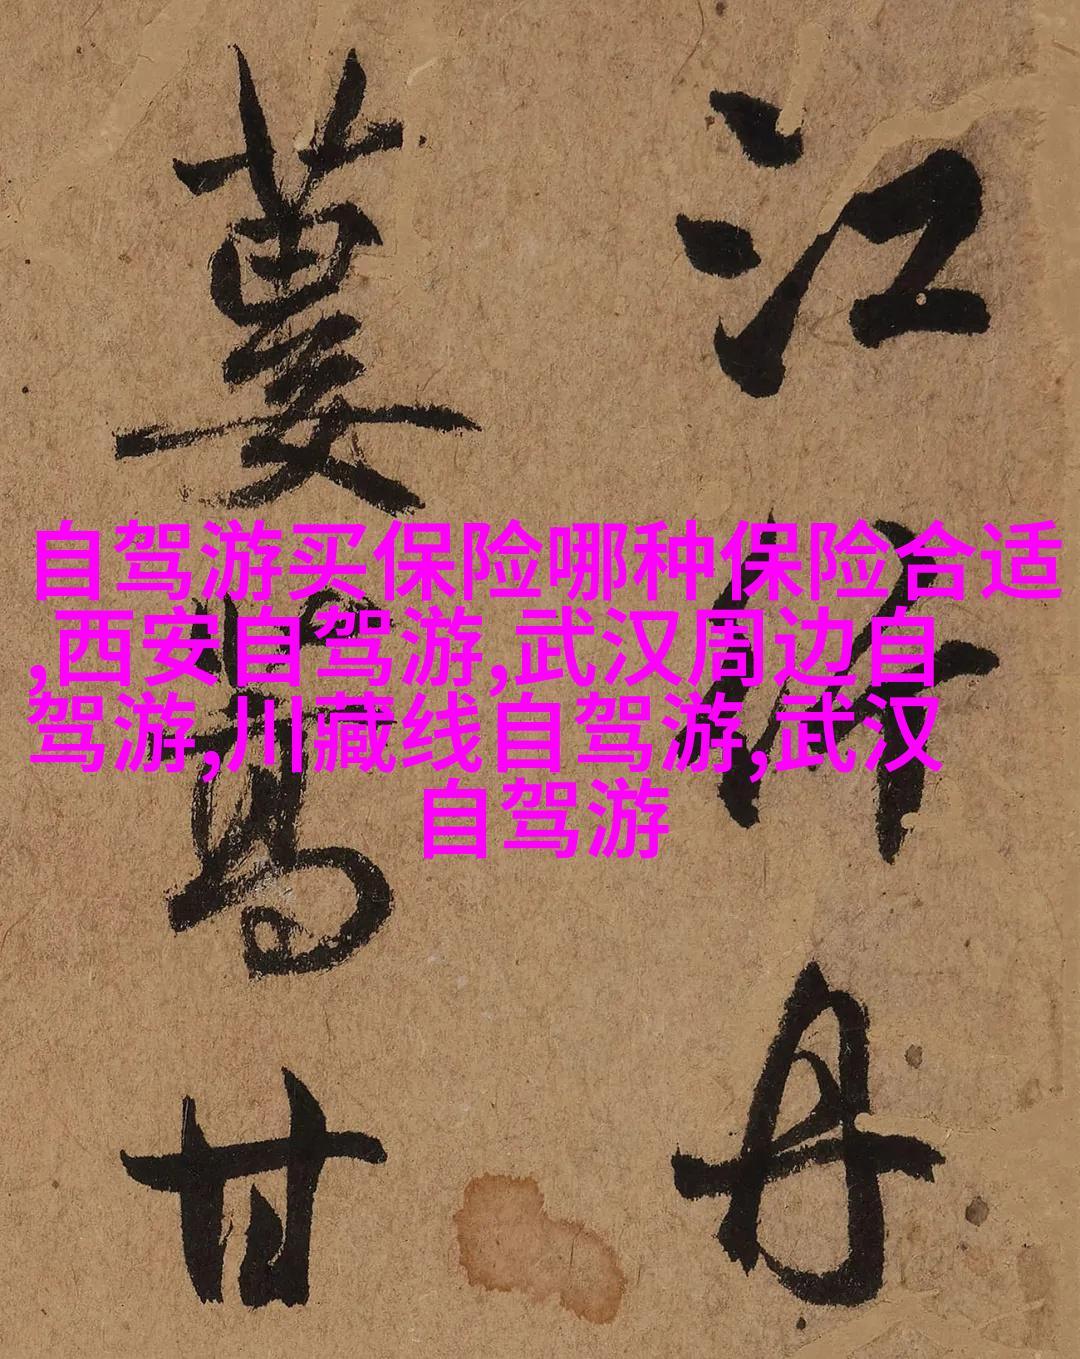 自驾游买保险哪种保险合适
,西安自驾游,武汉周边自
驾游,川藏线自驾游,武汉
自驾游
江丹
甘